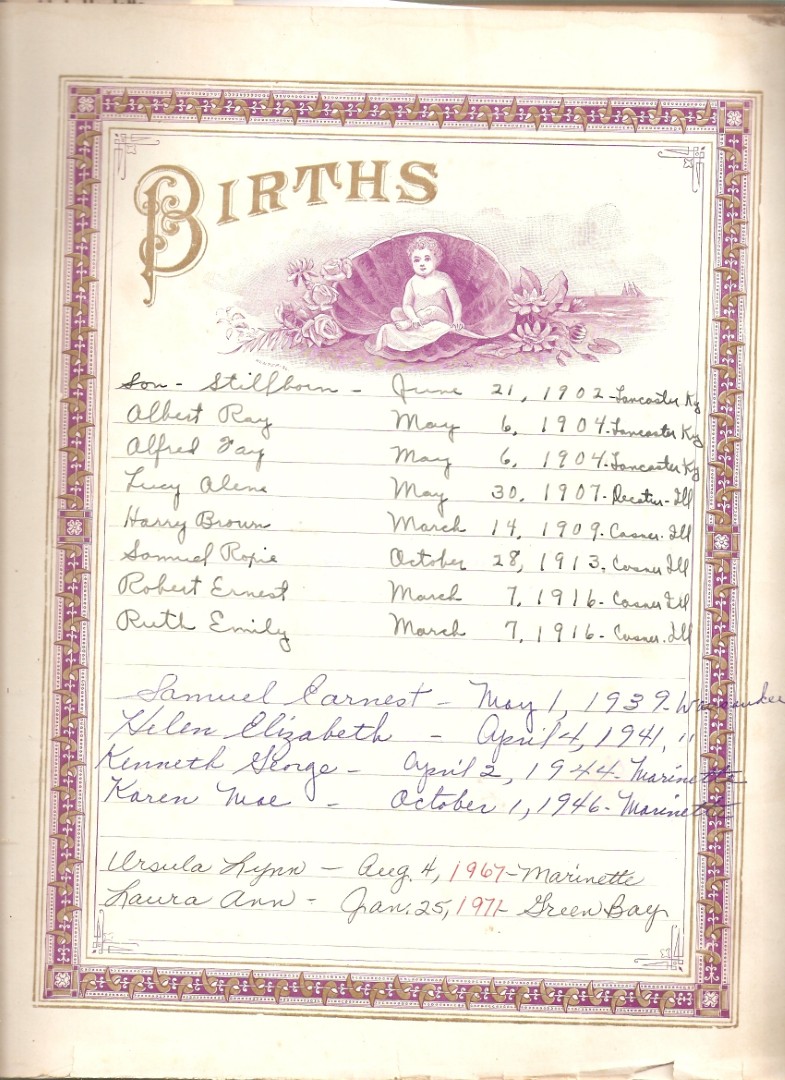 BIRTHS
Son - Stillborn - June 21, 1902 - Lancaster Ky
Albert Ray May 6, 1904 - Lancaster Ky
Alfred Fay May 6, 1904 - Lancaster Ky
Lucy Alene May 30, 1907 - Decatur - Ill
Harry Brown March 14, 1909 - Casner. Ill
Samuel Ropie October 28, 1913, Casner Ill
Robert Ernest March 7, 1916 - Casner Ill
Ruth Emily March 7, 1916 - Casner. Ill
Samuel Earnest - May 1, 1939 - Waukesha
Helen Elizabeth - April 4, 1941, "
Kenneth George - April 2, 1944 - Marinette
Karen Mae - October 1, 1946 - Marinette
Ursula Lynn - Aug. 4, 1967 - Marinette
Laura Ann - Jan. 25, 1971 - Green Bay